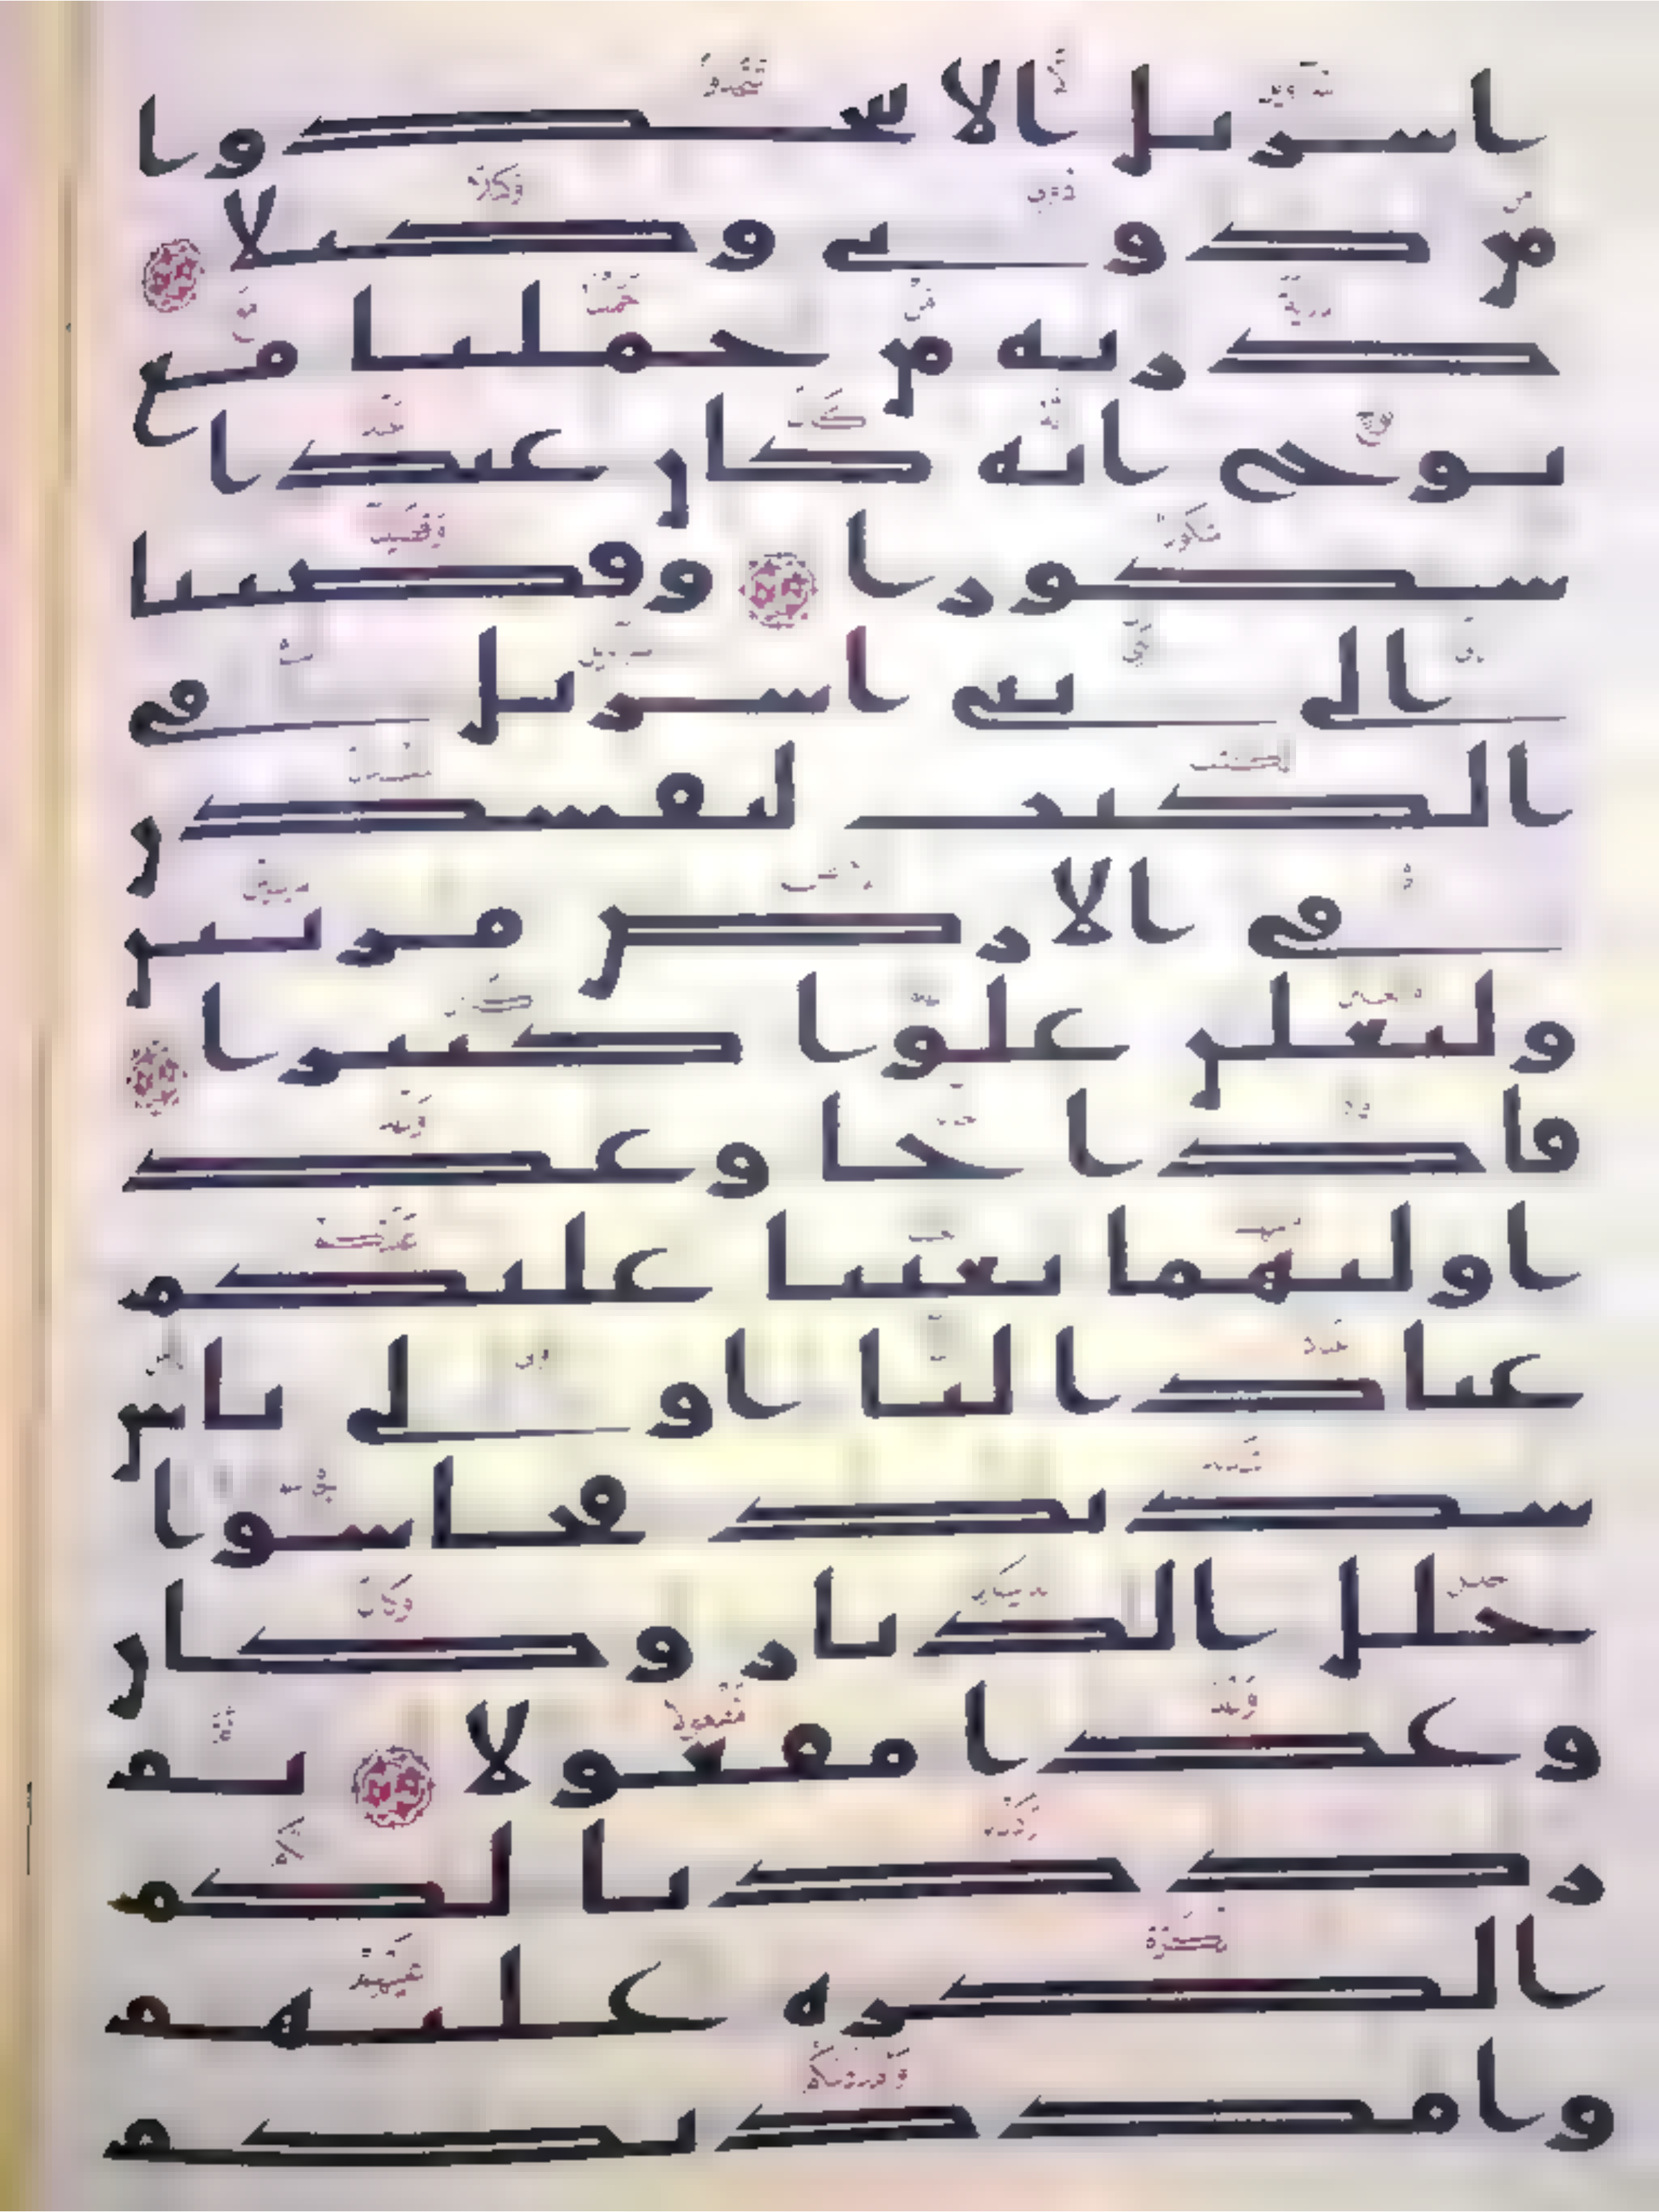 اسريل الا تتخذوا
من دوني وكيلا
ذرية من حملنا مع
نوح انه كان عبدا
شكورا وقضينا
الى بني اسريل في
الكتب لتفسدن
في الارض مرتين
ولتعلن علوا كبيرا
فاذا جا وعد
اوليهما بعثنا عليكم
عبادا لنا اولي باس
شديد فجاسوا
خلل الديار وكان
وعدا مفعولا ثم
رددنا لكم
الكرة عليهم
وامددنكم